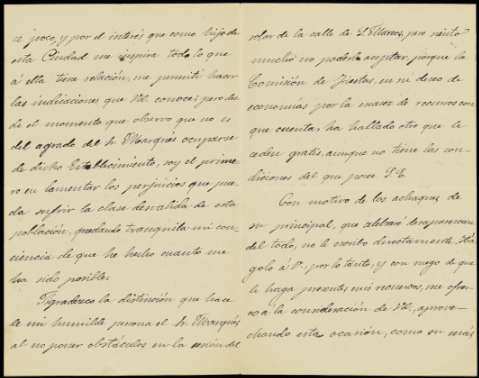 ce poco, y por el interés que como hijo de
esta Ciudad me inspira todo lo que
á ella tiene relación, me permití hacer
las indicaciones que V. conoce; pero des
de el momento que observo que no es
del agrado del Sr. Marqués ocuparse
de dicho Establecimiento, soy el prime
ro en lamentar los perjuicios que pue
da sufrir la clase desvalida de esta
población, quedando tranquila mi con
ciencia de que he hecho cuanto me
ha sido posible.
Agradezco la distinción que hace
de mi humilde persona el Sr. Marqués
al no poner obstáculos en la cesión del
solar de la calle de pero siento
mucho no poderlo aceptar, porque la
Comisión de Fiestas, en su deseo de
economías por la escasez de recursos con
que cuenta, ha hallado otro que le
ceden gratis, aunque no tiene las con-
diciones del que posee S. E.
Con motivo de los achaques de
su principal, que celebraré desaparezcan
del todo, no le escribo directamente. Há
golo á V., por lo tanto, y con ruego de que
le haga presentes mis recuerdos, me ofrez
co á la consideración de V., aprove-
chando esta ocasión, como su más